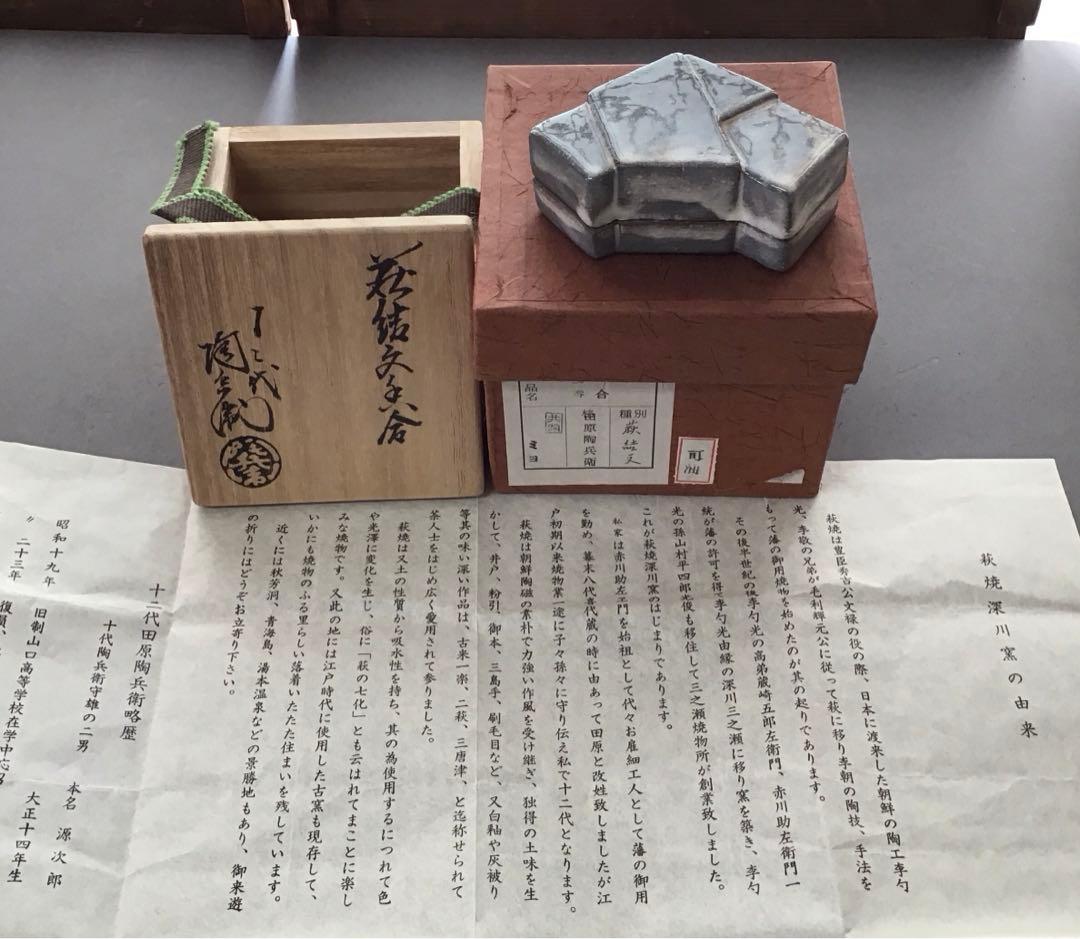 萩結文香合
十二代
陶兵衛
品名
合
種別
萩結文
田原陶兵衛
萩焼深川窯の由来
萩焼は豊臣秀吉公文様の役の際、日本に渡来した朝鮮の陶工李勺
光、李敬の兄弟が毛利輝元公に従って萩に移り李朝の陶技、手法を
もって藩の御用焼物を始めたのが其の起りであります。
その後半世紀の後李勺光の高弟蔵崎五郎左衛門、赤川助左衛門一
統が藩の許可を得て李勺光由縁の深川三之瀬に移り窯を築き、李勺
光の孫山村平四郎光俊も移住して三之瀬焼物所が創業致しました。
これが萩焼深川窯のはじまりであります。
私家は赤川助左ヱ門を始祖として代々お雇細工人として藩の御用
を勤め、幕末八代喜代蔵の時に由あって田原と改姓致しましたが江
戸初期以来焼物業一途に子々孫々に守り伝え私で十二代となります。
萩焼は朝鮮陶磁の素朴で力強い作風を受け継ぎ、独得の土味を生
かして、井戸、粉引、御本、三島手、刷毛目など、又白釉や灰被り
等其の味い深い作品は、古来一楽、二萩、三唐津、と迄称せられて
茶人士をはじめ広く愛用されて参りました。
萩焼は又土の性質から吸水性を持ち、其の為使用するにつれて色
や光澤に変化を生じ、俗に「萩の七化」とも云はれてまことに楽し
みな焼物です。又此の地には江戸時代に使用した古窯も現存して、
いかにも焼物のふる里らしい落着いたた住まいを残しています。
近くには秋芳洞、青海島、湯本温泉などの景勝地もあり、御来遊
の折りにはどうぞお立寄り下さい。
十二代田原陶兵衛略歴
十代陶兵衛守雄の二男 本名 源次郎
大正十四年生
昭和十九年 旧制山口高等学校在学中応召
〃 二十三年 復員、